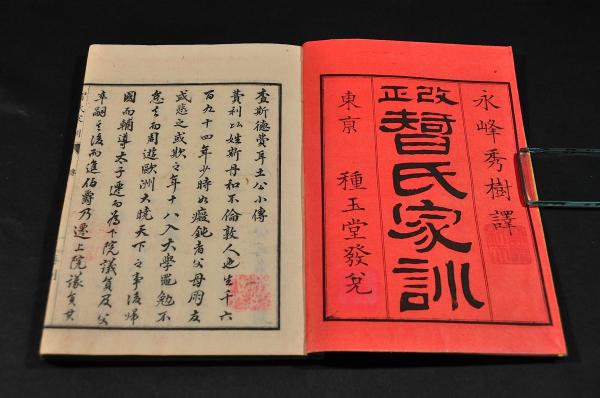 永峰秀樹譯
改正
智氏家訓
東京 種玉堂發兌
查斯德費耳土公小傳
費利姓斯丹和不倫敦人也生千六
百九十四年少時如癡鈍者父母朋友
或悲之或欺之年十八入大學黽勉不
怠去而周遊歐洲大曉天下之事後歸
國而輔導太子遷而為下院議員及父
卒嗣其後而進伯爵乃遷上院議員其